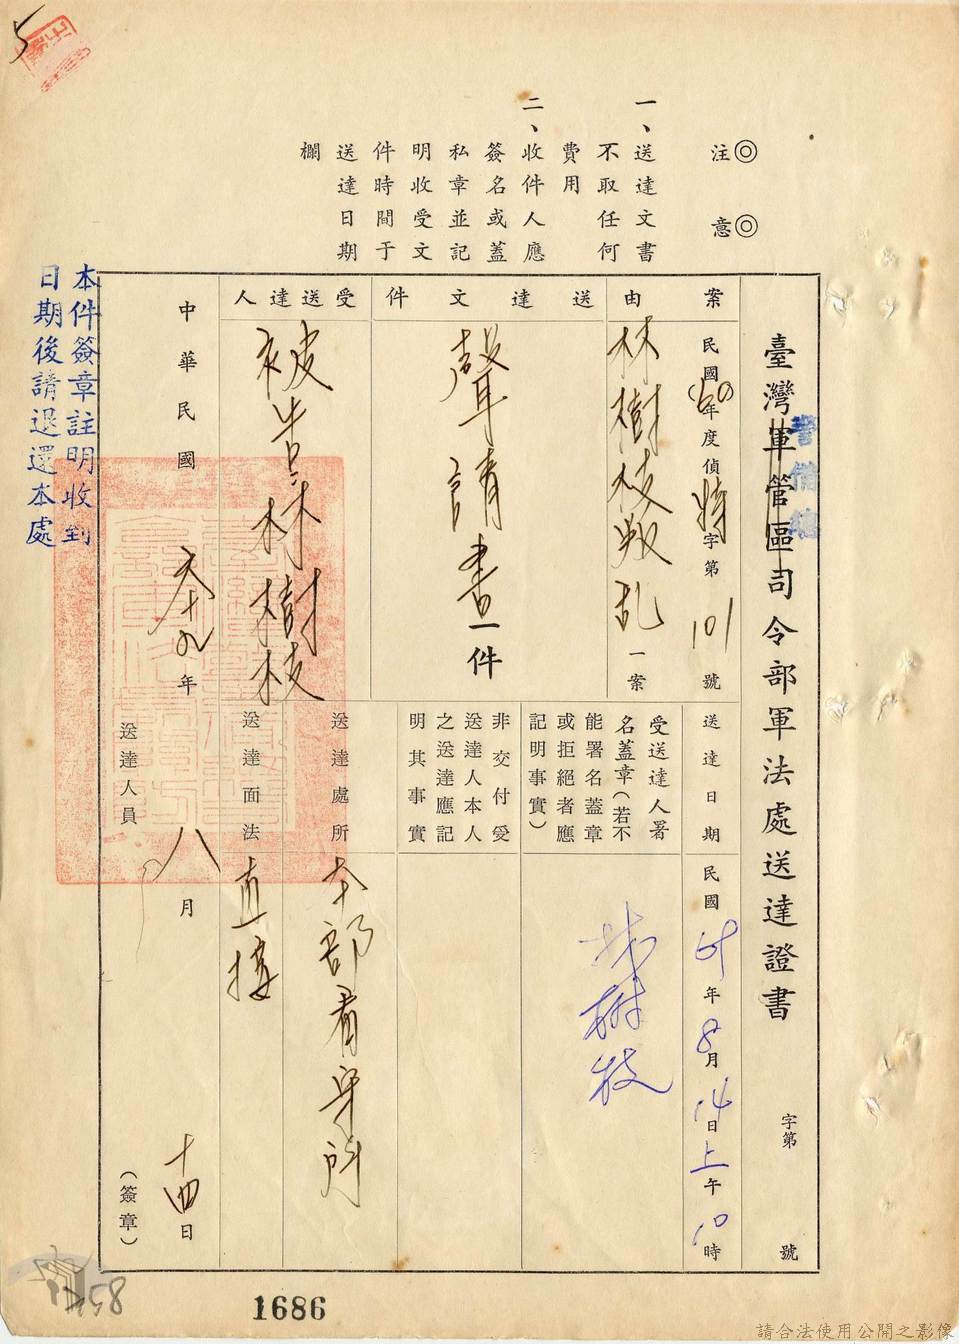 臺灣軍管區司令部軍法處送達證書
字第　號
警備總
◎注意◎
一、送達文書
不取任何
費用
二、收件人應
簽名或蓋
私章並記
明收受文
件時間于
送達日期
欄
案由
民國(60)年度偵特字第101號
林樹枝叛乱一案
送達文件
聲請書一件
受送達人
被告林樹枝
送達日期
民國61年8月14日上午10時
受送達人署
名蓋章(若不
能署名蓋章
或拒絕者應
記明事實)
林樹枝
非交付受
送達人本人
之送達應記
明其事實
送達處所
本部看守所
送達面法
直接
中華民國六十一年八月十四日
送達人員
(簽章)
本件簽章註明收到
日期後請退還本處
5
58
1686
請合法使用公開之影像